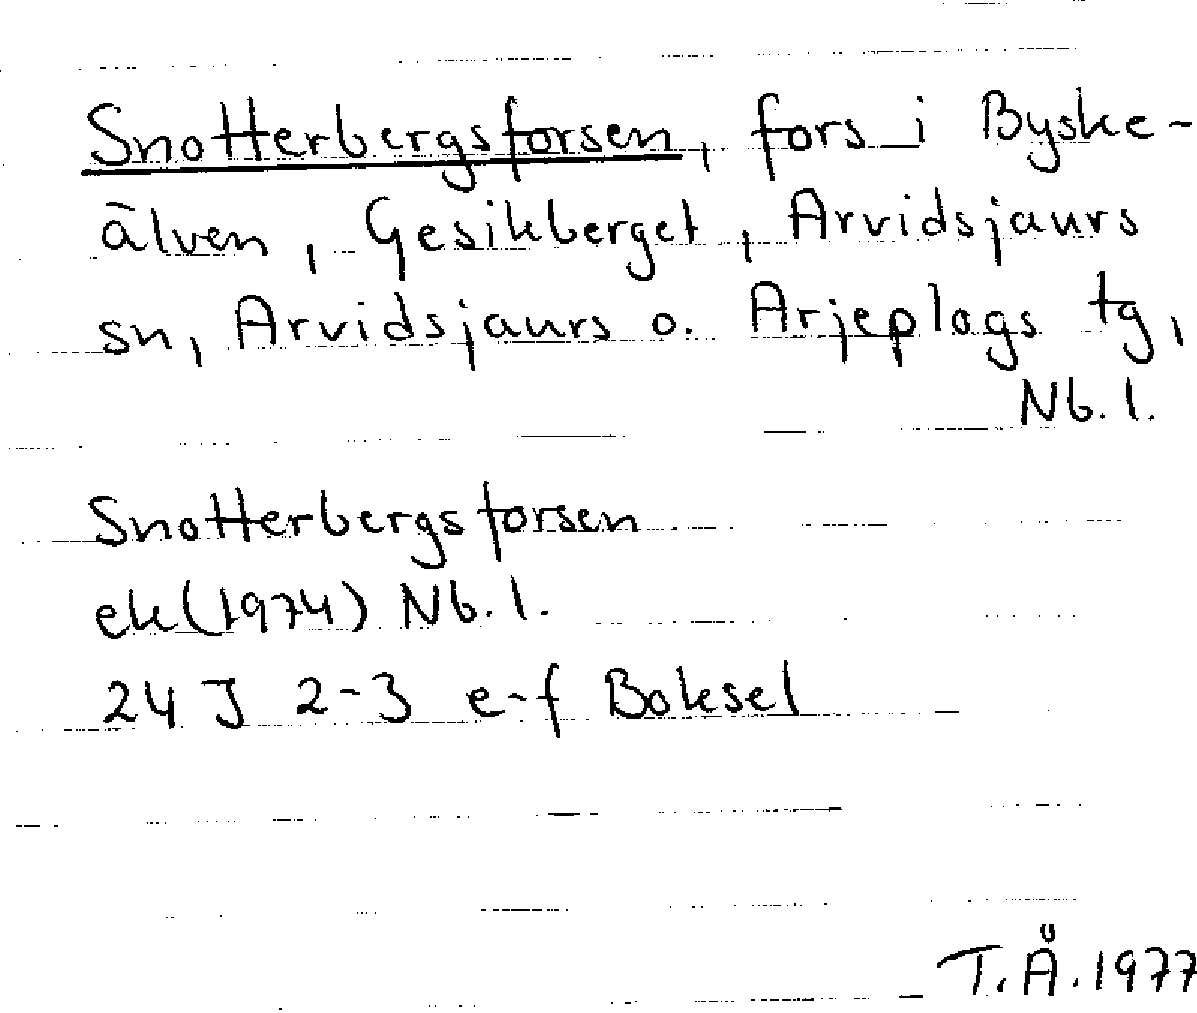 Snotterbergsforsen, fors i Byske-
älven, Gesikberget, Arvidsjaurs
sn, Arvidsjaurs o. Arjeplogs tg,
Nb. l.
Snotterbergsforsen
ek (1974) Nb. l.
24 J 2-3 e-f Boksel
T.Å. 1977